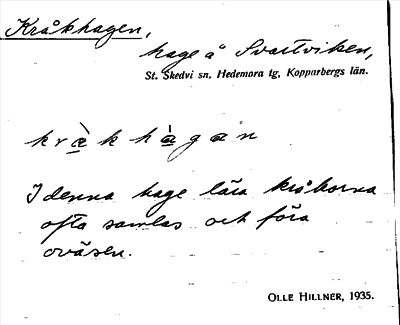 Kråkhagen,
hage å Svartviken,
St. Skedvi sn, Hedemora tg, Kopparbergs län.
kràkhàgan
I denna hage lära kråkorna
ofta samlas och föra
oväsen.
OLLE HILLNER, 1935.